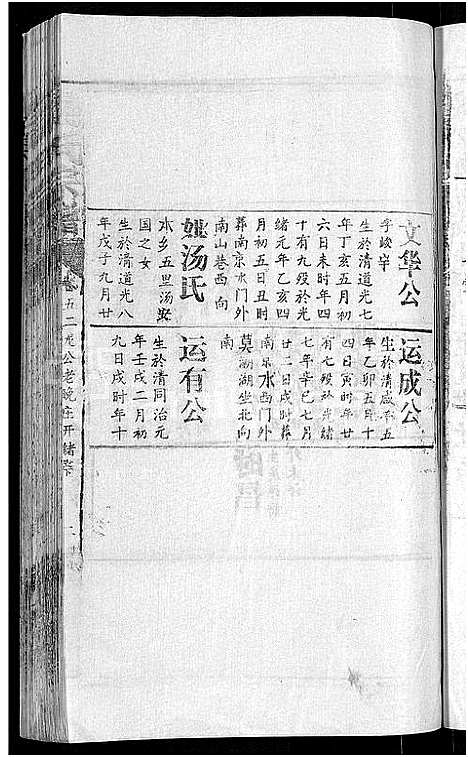 文华公
字峻宰
生於清道光七
年丁亥五月初
六日未时年四
十有九殁於光
绪元年乙亥四
月初五日丑时
葬南京水门外
南山巷西向
妣汤氏
本乡五里汤
国之女
生於清道光八
年戊子九月廿
运成公
生於清咸丰五
年乙卯五月十
四日寅时年廿
有七殁於光绪
七年辛巳七月
廿二日戌时葬
南京水西门外
莫湖湖坐北向
南
运有公
生於清同治元
年壬戌二月初
九日戌时年十
宗谱
卷五二 公老晚庄开绪